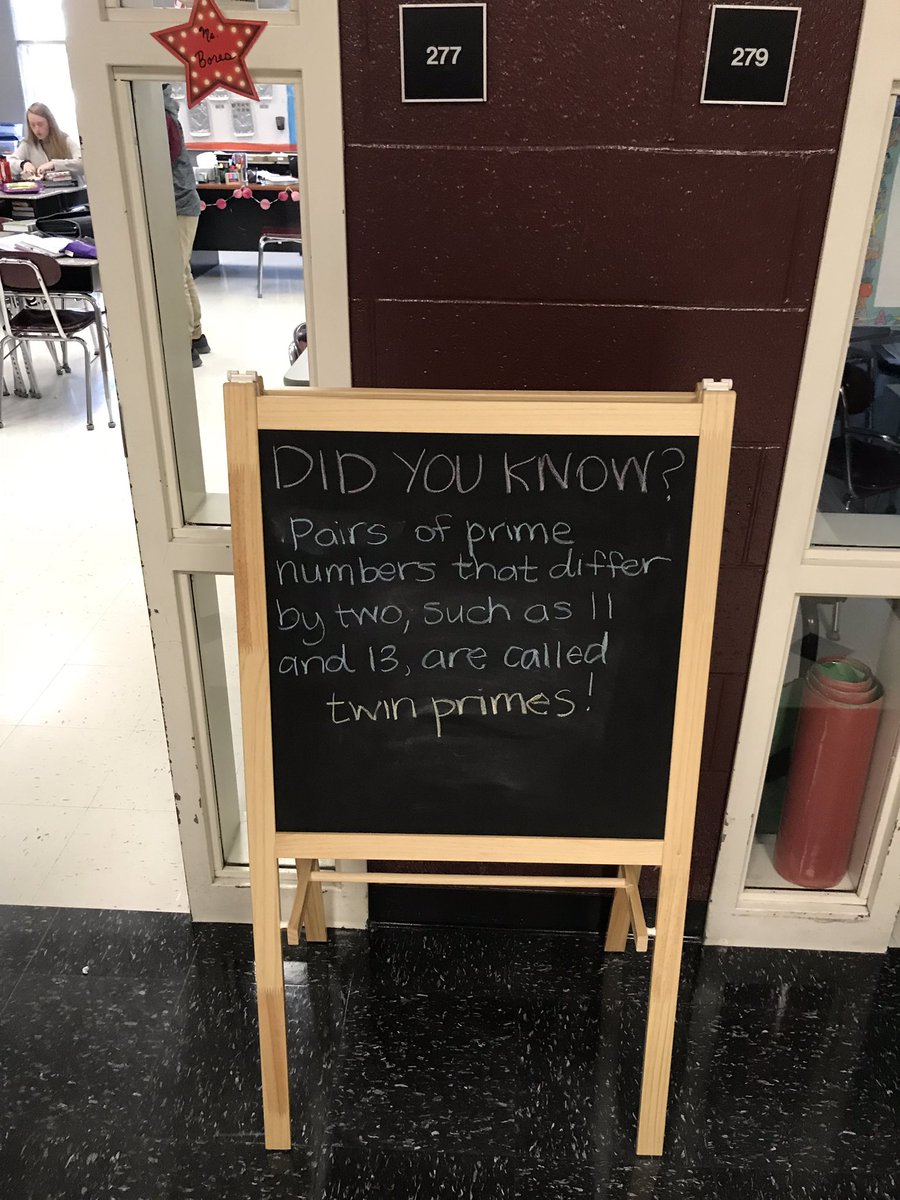 Ms. Bores
277
279
DID YOU KNOW?
Pairs of prime
numbers that differ
by two, such as 11
and 13, are called
twin primes!